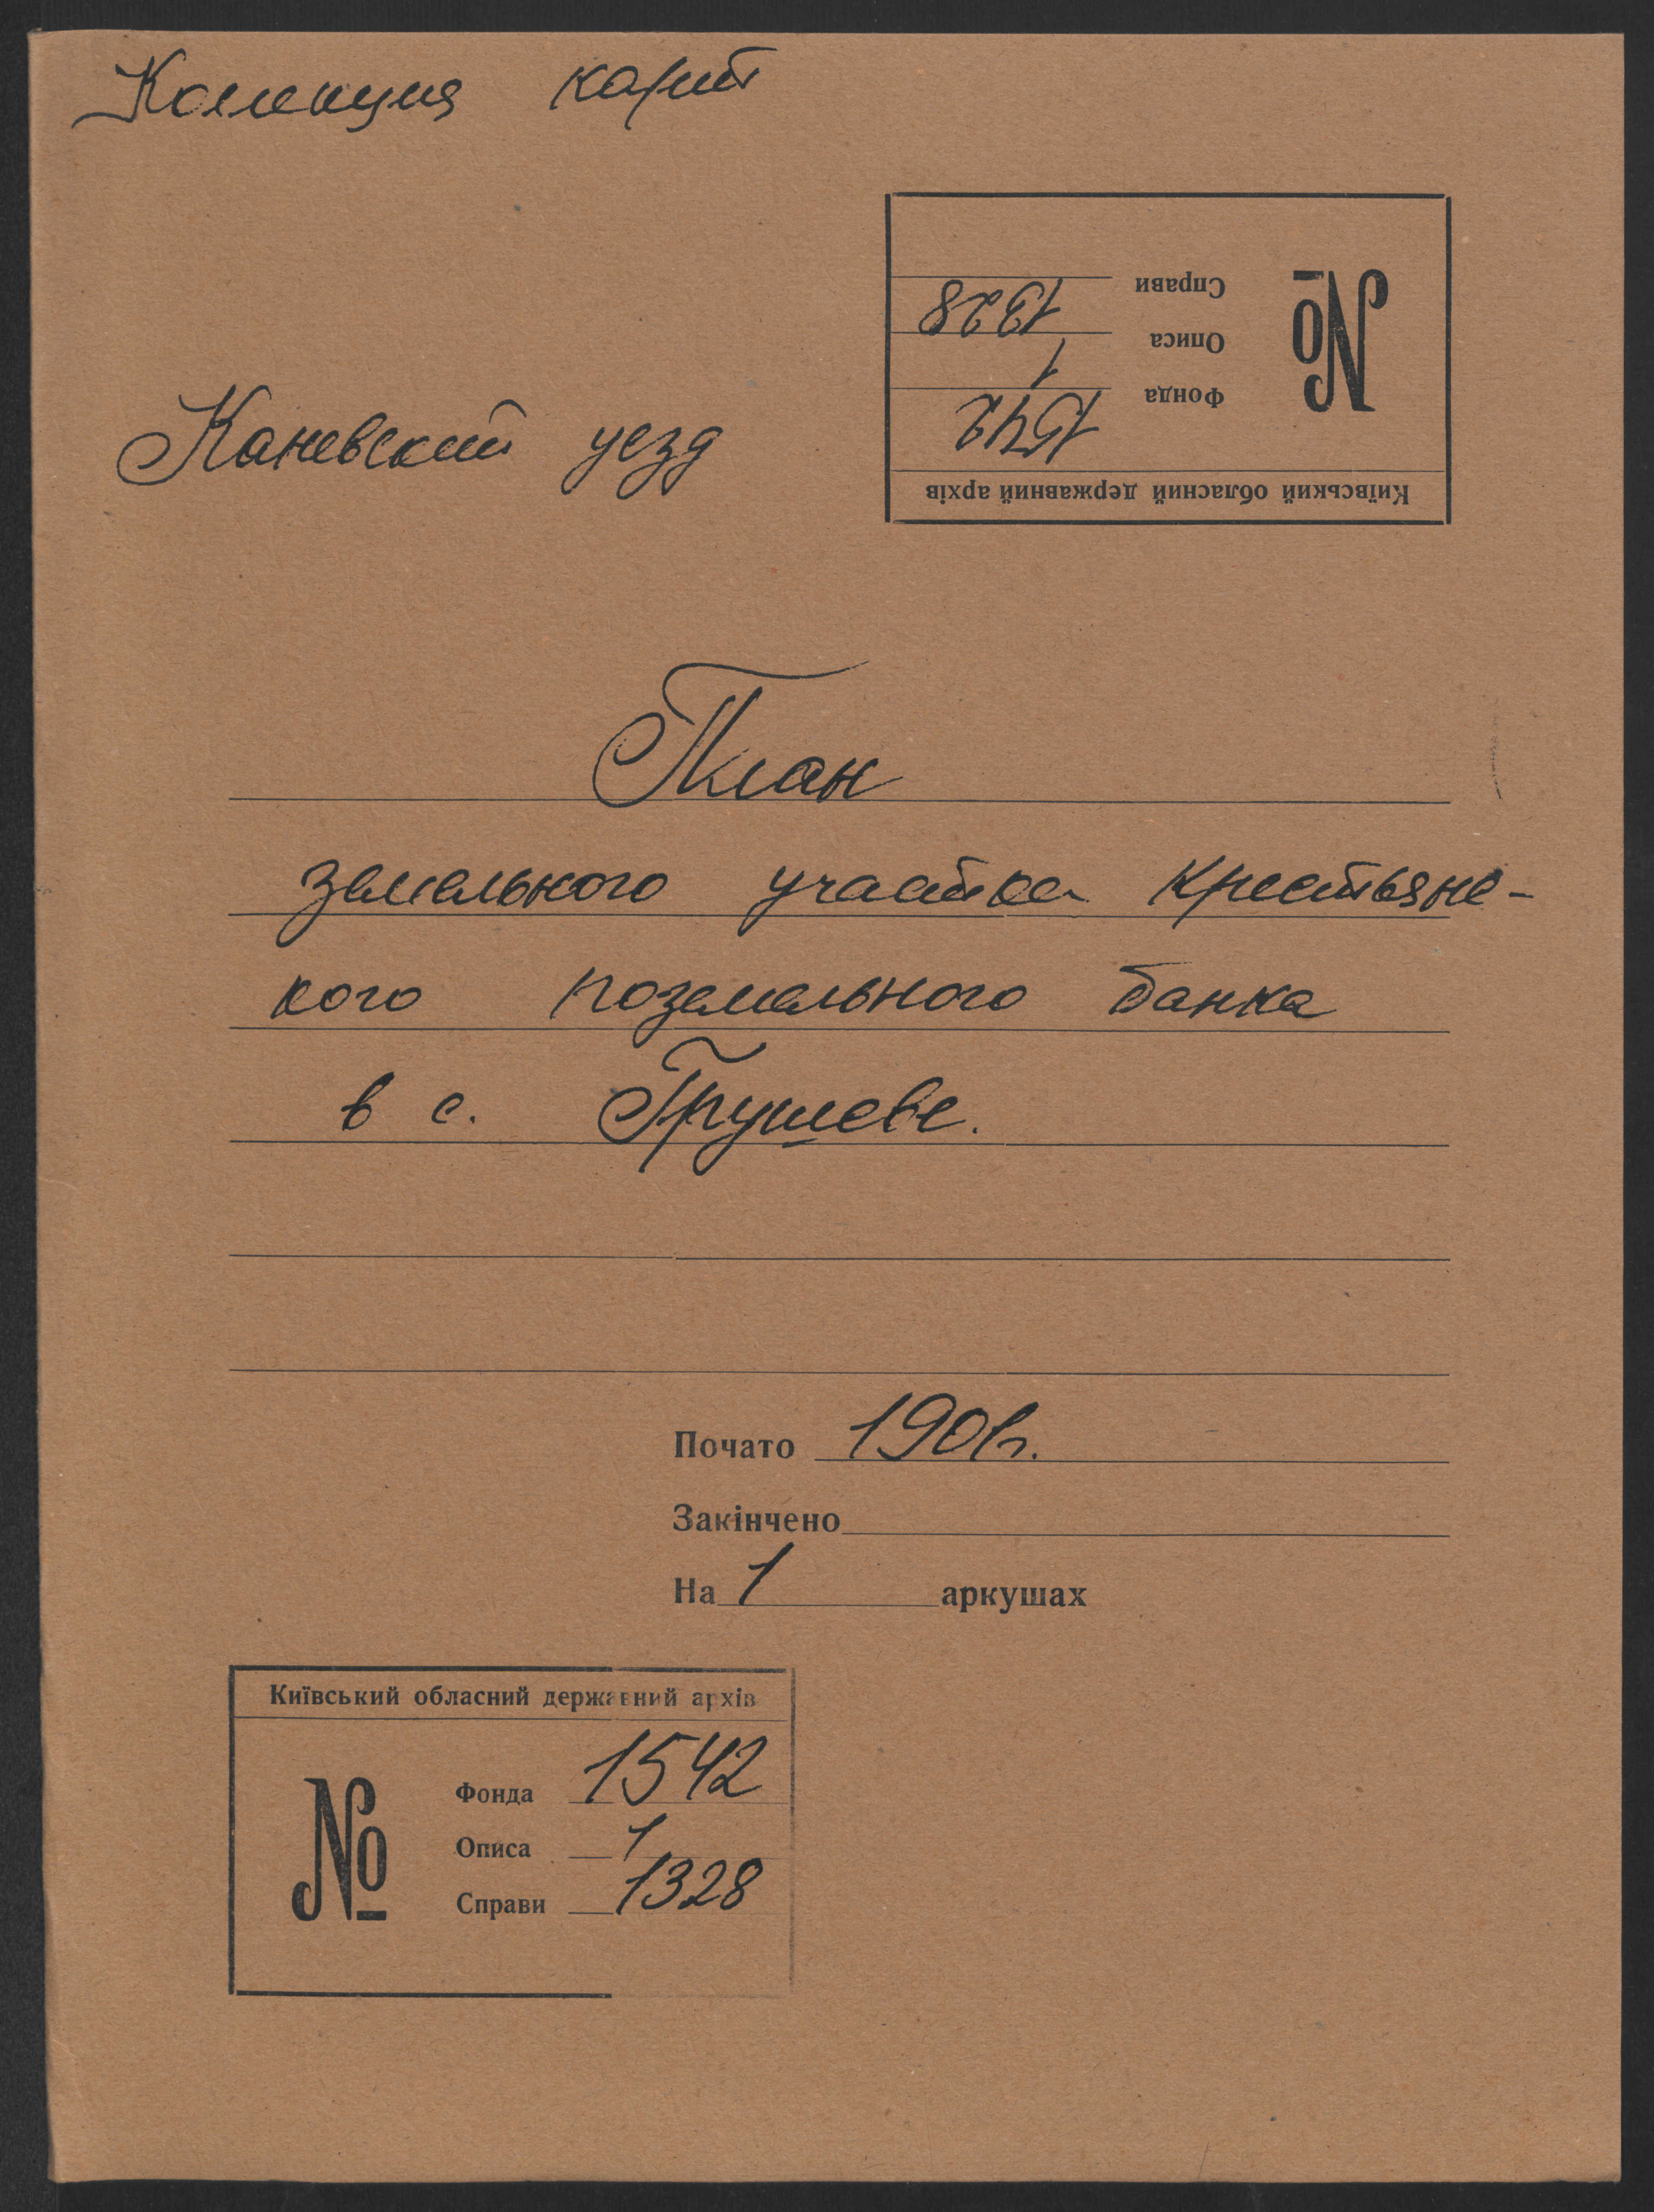 Колекция карт
Справи 1328
Описа 1
Фонда 1542
№
Київський обласний державний архів
Каневский уезд
План
земельного участка крестьянс-
кого поземельного банка
в с. Грушеве.
Почато 1901г.
Закінчено
На 1 аркушах
Київський обласний державний архів
№
Фонда 1542
Описа 1
Справи 1328